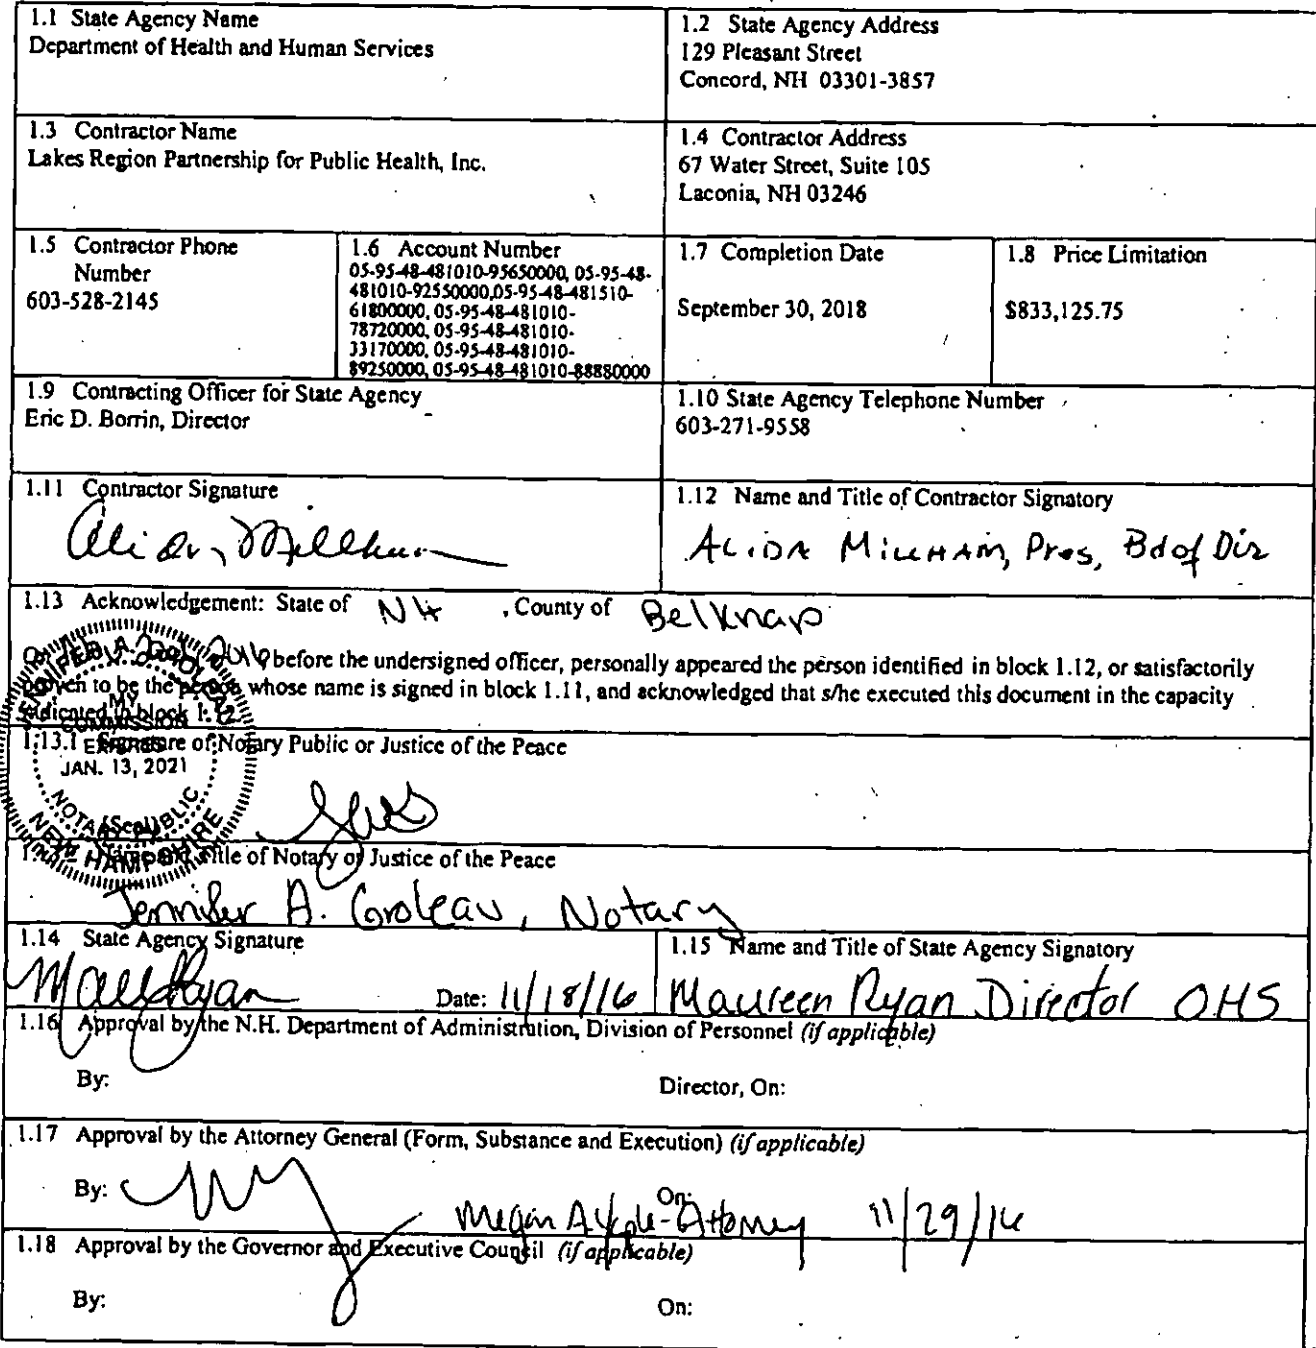 1.1 State Agency Name
Department of Health and Human Services
1.2 State Agency Address
129 Pleasant Street
Concord, NH 03301-3857
1.3 Contractor Name
Lakes Region Partnership for Public Health, Inc.
1.4 Contractor Address
67 Water Street, Suite 105
Laconia, NH 03246
1.5 Contractor Phone
Number
603-528-2145
1.6 Account Number
05-95-48-481010-95650000, 05-95-48-
481010-92550000,05-95-48-481510-
61800000, 05-95-48-481010-
78720000, 05-95-48-481010-
33170000, 05-95-48-481010-
89250000, 05-95-48-481010-88880000
1.7 Completion Date
September 30, 2018
1.8 Price Limitation
$833,125.75
1.9 Contracting Officer for State Agency
Eric D. Borrin, Director
1.10 State Agency Telephone Number
603-271-9558
1.11 Contractor Signature
Alida Millham
1.12 Name and Title of Contractor Signatory
ALIDA MILLHAM, Pres, Bd of Dir
1.13 Acknowledgement: State of NH , County of Belknap
before the undersigned officer, personally appeared the person identified in block 1.12, or satisfactorily
proven to be the person whose name is signed in block 1.11, and acknowledged that s/he executed this document in the capacity
indicated in block 1.12
1.13.1 Signature of Notary Public or Justice of the Peace
MY
COMMISSION
EXPIRES
JAN. 13, 2021
NOTARY PUBLIC
NEW HAMPSHIRE
[Seal]
Title of Notary or Justice of the Peace
Jennifer A. Groleau, Notary
1.14 State Agency Signature
Date: 11/18/16
1.15 Name and Title of State Agency Signatory
Maureen Ryan Director OHS
1.16 Approval by the N.H. Department of Administration, Division of Personnel (if applicable)
By:
Director, On:
1.17 Approval by the Attorney General (Form, Substance and Execution) (if applicable)
By:
On:
Megan A. - Attorney 11/29/16
1.18 Approval by the Governor and Executive Council (if applicable)
By:
On: